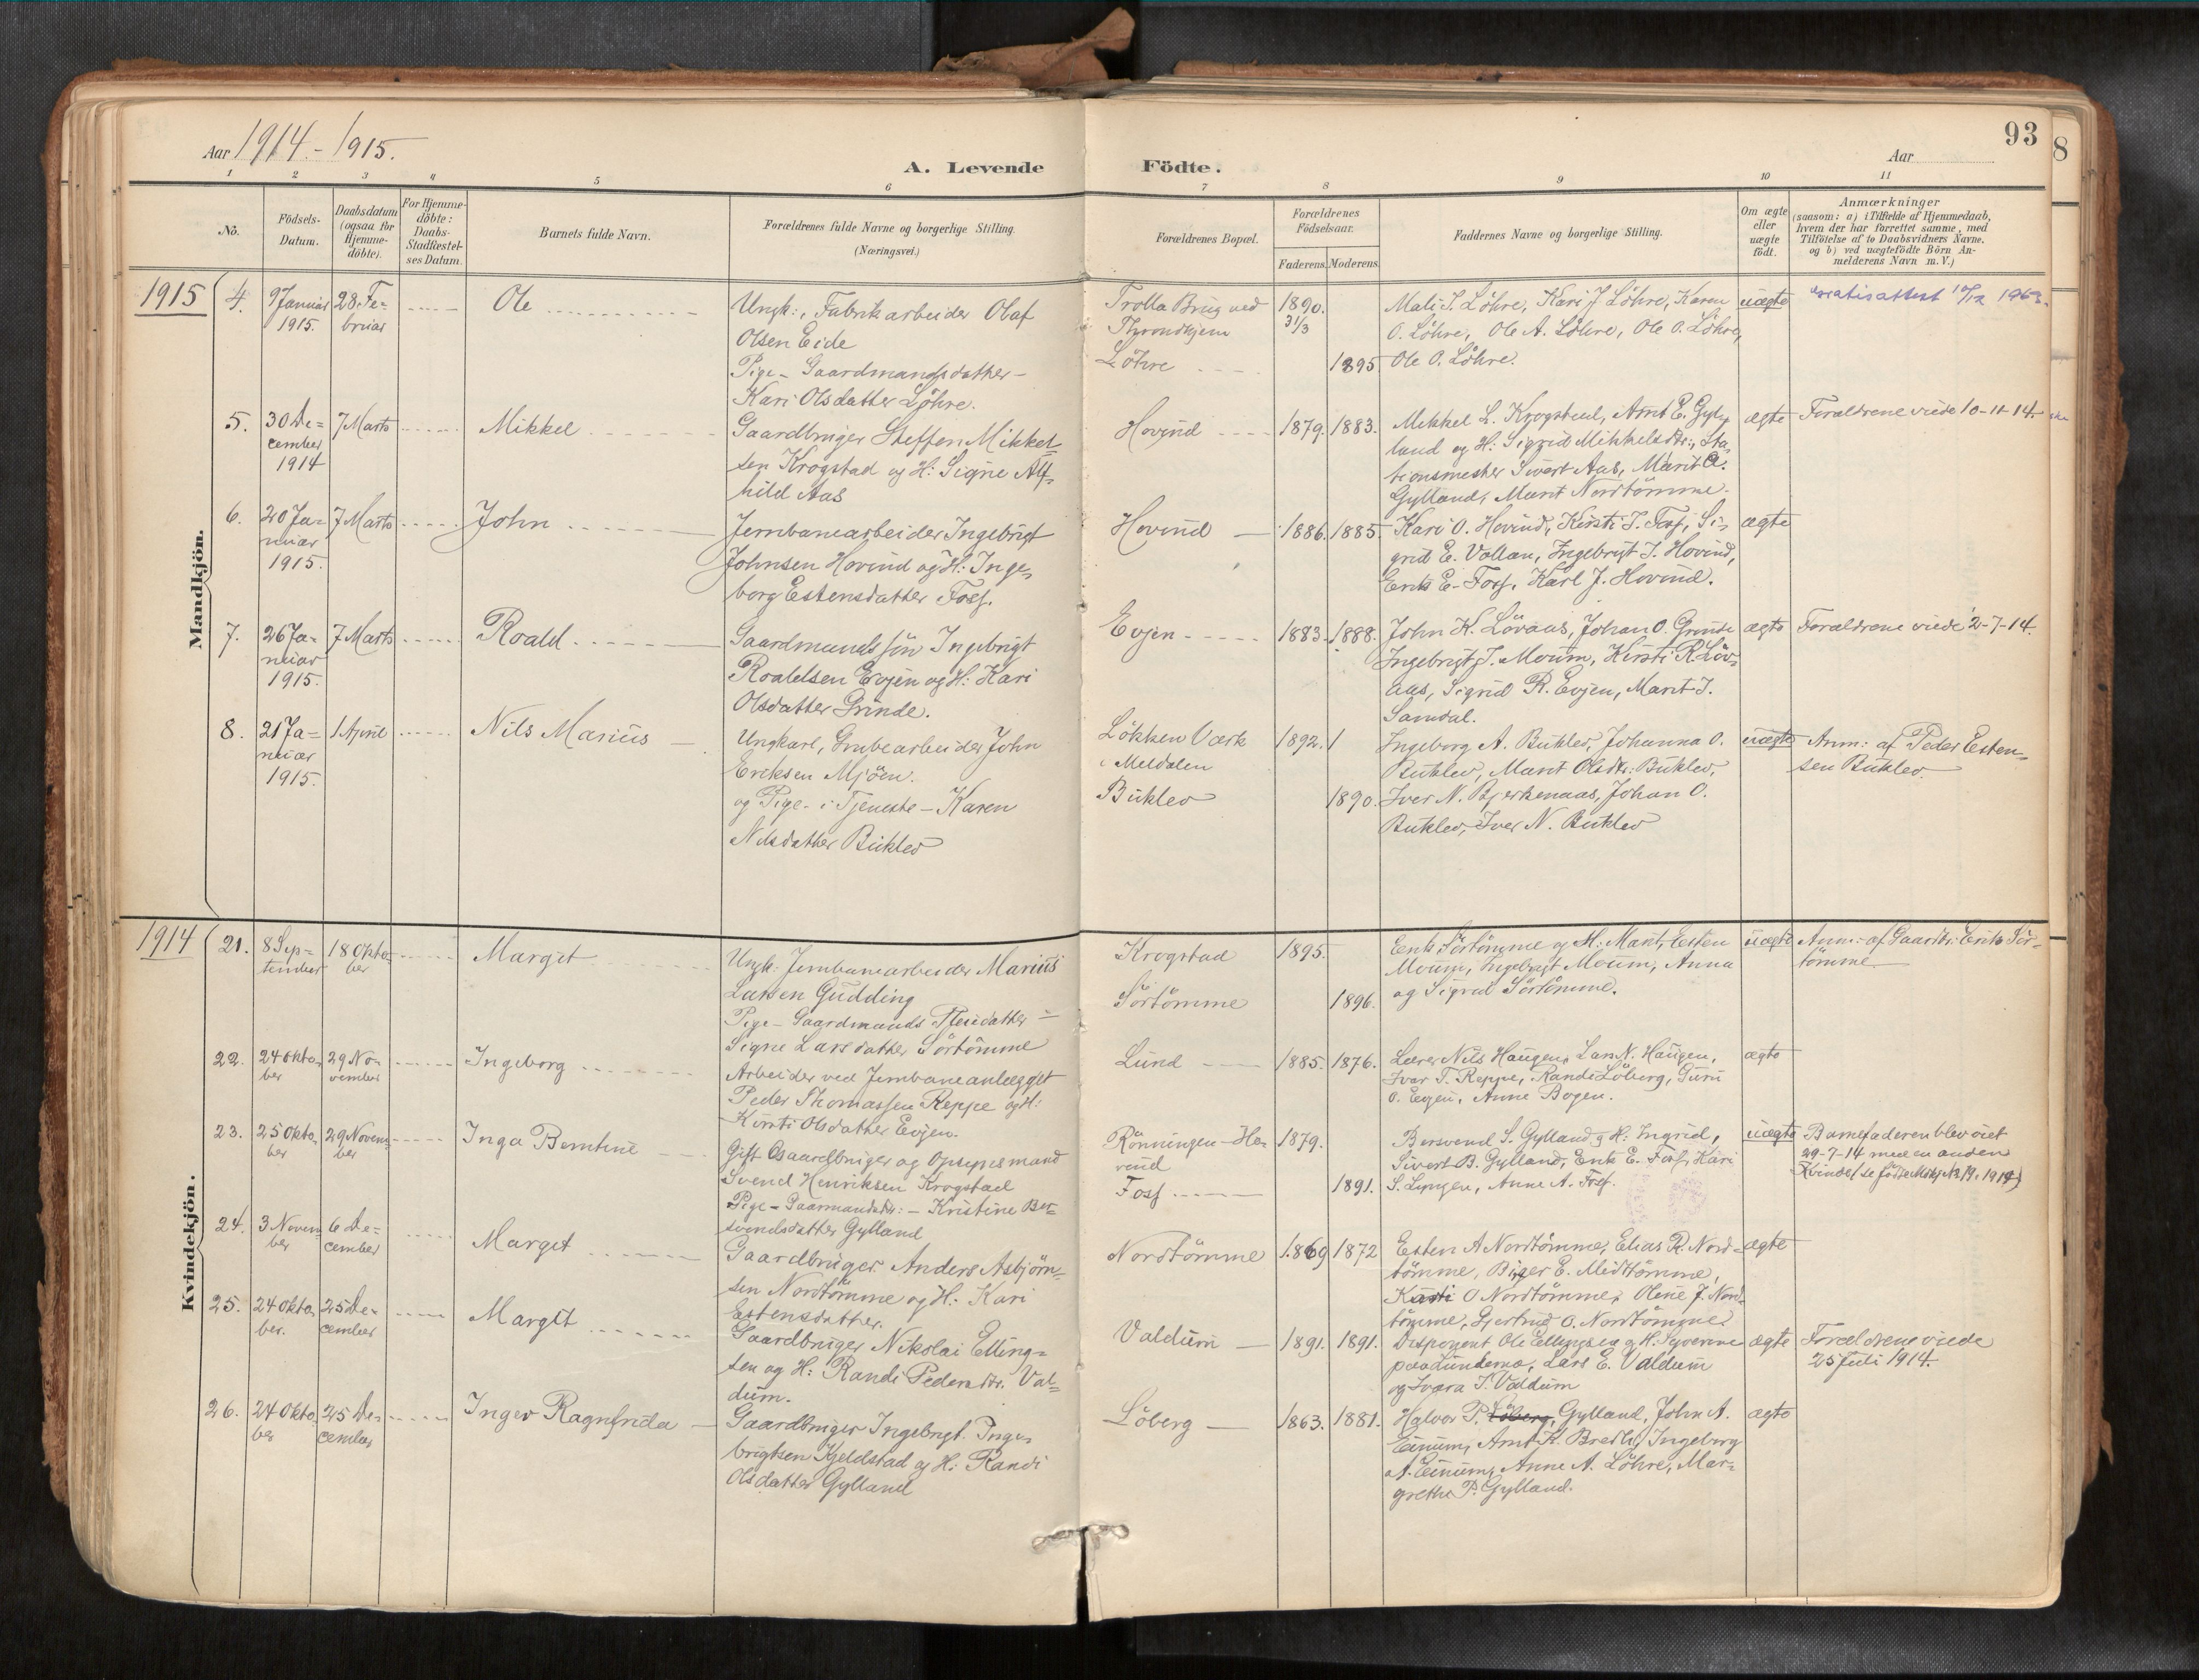 Aar 1914.-1915.
A. Levende
Födte.
Aar
93
8
1 2 3 4 5 6 7 8 9 10 11
No.
Födsels-Datum.
Daabsdatum (ogsaa for Hjemme-döbte).
For Hjemme-döbte: Daabs-Stadfæstel-ses Datum.
Barnets fulde Navn.
Forældrenes fulde Navne og borgerlige Stilling. (Næringsvei.)
Forældrenes Bopæl.
Forældrenes Födselsaar.
Faderens. Moderens.
Faddernes Navne og borgerlige Stilling.
Om ægte eller uægte födt.
Anmærkninger
(saasom: a) i Tilfælde af Hjemmedaab, hvem der har forrettet samme, med Tilföielse af to Daabsvidners Navne. og b) ved uægtefödte Börn Anmelderens Navn m. V.)
Mandkjön.
1915
4. 9 Januar 1915. 28. Fe-bruar
Ole
Ungk:, Fabrikarbeider Olaf
Olsen Eide
Pige - Gaardmandsdatter -
Kari Olsdatter Löhre.
Trolla Brug ved
Throndhjem
Löhre
1890. 31/3
1895
Mali I. Löhre, Kari J. Löhre, Karen
O. Löhre, Ole A. Löhre, Ole O. Löhre,
Ole O. Löhre.
uægte
Gratisattest 10/12 1963.
5. 30 De-cember 1914 7 Marts
Mikkel
Gaardbruger Steffen Mikkel-
sen Krogstad og H: Signe Alf-
hild Aas
Hovind
1879. 1883.
Mikkel L. Krogstad, Arnt E. Gyl-
land og H: Sigrid Mikkelsdtr:, Sta-
tionsmester Sivert Aas, Marit A.
Gylland, Marit Nordtömme.
ægte
Forældrene viede 10-11-14.
6. 20 Ja-nuar 1915. 7 Marts
John
Jernbanearbeider Ingebrigt
Johnsen Hovind og H: Inge-
borg Estensdatter Foss.
Hovind
1886. 1885.
Kari O. Hovind, Kirsti J. Foss, Si-
grid E. Vollan, Ingebrigt J. Hovind,
Erik E. Foss, Karl J. Hovind.
ægte
7. 26 Ja-nuar 1915. 7 Marts
Roald
Gaardmandssön Ingebrigt
Roaldsen Evjen og H: Kari
Olsdatter Grinde.
Evjen
1883. 1888.
John K. Lövaas, Johan O. Grinde
Ingebrigt J. Moum, Kirsti R. Löv-
aas, Sigrid R. Evjen, Marit I.
Samdal.
ægte
Forældrene viede 2-7-14.
8. 21 Ja-nuar 1915. 1 April
Nils Marius
Ungkarl, Grubearbeider John
Eriksen Mjöen.
og Pige - i Tjeneste - Karen
Nilsdatter Buklev
Lökken Værk
i Meldalen
Buklev
1892.
1890.
Ingeborg A. Buklev, Johanna O.
Buklev, Marit Olsdtr: Buklev,
Iver N. Bjerkenaas, Johan O.
Buklev, Iver N. Buklev
uægte
Anm: af Peder Esten-
sen Buklev.
Kvindekjön.
1914
21. 8 Sep-tember 18 Okto-ber
Margit
Ungk: Jernbanearbeider Marius
Larsen Gudding
Pige - Gaardmands Pleiedatter -
Signe Larsdatter Sörtömme
Krogstad
Sörtömme
1895.
1896.
Erik Sörtömme og H: Marit, Esten
Moum, Ingebrigt Moum, Anna
og Sigrid Sörtömme.
uægte
Anm: af Gaardbr: Erik Sör-
tömme
22. 24 Okto-ber 29 No-vember
Ingeborg
Arbeider ved Jernbaneanlægget
Peder Thomassen Reppe og H:
Kirsti Olsdatter Evjen.
Lund
1885. 1876.
Lærer Nils Haugen, Lars N. Haugen,
Ivar T. Reppe, Randi Löberg, Guru
O. Evjen, Anne Bogen.
ægte
23. 25 Okto-ber 29 Novem-ber
Inga Berntine
Gift Gaardbruger og Opsynsmand
Svend Henriksen Krogstad
Pige - Gaarmandsdtr: - Kristine Ber-
svendsdatter Gylland
Rönningen - Ho-
vind
Foss
1879.
1891.
Bersvend S. Gylland og H: Ingrid,
Sivert B. Gylland, Erik E. Foss, Kari
S. , Anne A. Foss.
uægte
Barnefaderen blev viet
29-7-14 med en anden
Kvinde (se födte Mdkj. No 19. 1914)
24. 3 Novem-ber 6 De-cember
Margit
Gaardbruger Anders Asbjörn-
sen Nordtömme og H: Kari
Estensdatter.
Nordtömme
1869 1872
Esten A Nordtömme, Elias R. Nord-
tömme, Birger E. Midttömme,
Kirsti O Nordtömme, Oline J. Nord-
tömme, Gjertrud O. Nordtömme.
ægte
25. 24 Okto-ber. 25 De-cember
Margit
Gaardbruger Nikolai Elling-
sen og H: Randi Pedersdtr. Val-
dum.
Valdum
1891. 1891.
Disponent Ole Ellingsen og H.
paa Lunderne, Lars E. Valdum
og Ivara I. Valdum
ægte
Forældrene viede
25 Juli 1914.
26. 24 Okto-ber 25 De-cember
Inger Ragnfrida
Gaardbruger Ingebrigt Inge-
brigtsen Kjeldstad og H: Randi
Olsdatter Gylland
Löberg
1863. 1881.
Halvor P. Löberg, Gylland, John A.
Einum, Arnt K. Bredli, Ingeborg
A. Einum, Anne A. Löhre, Mar-
grethe P. Gylland.
ægte